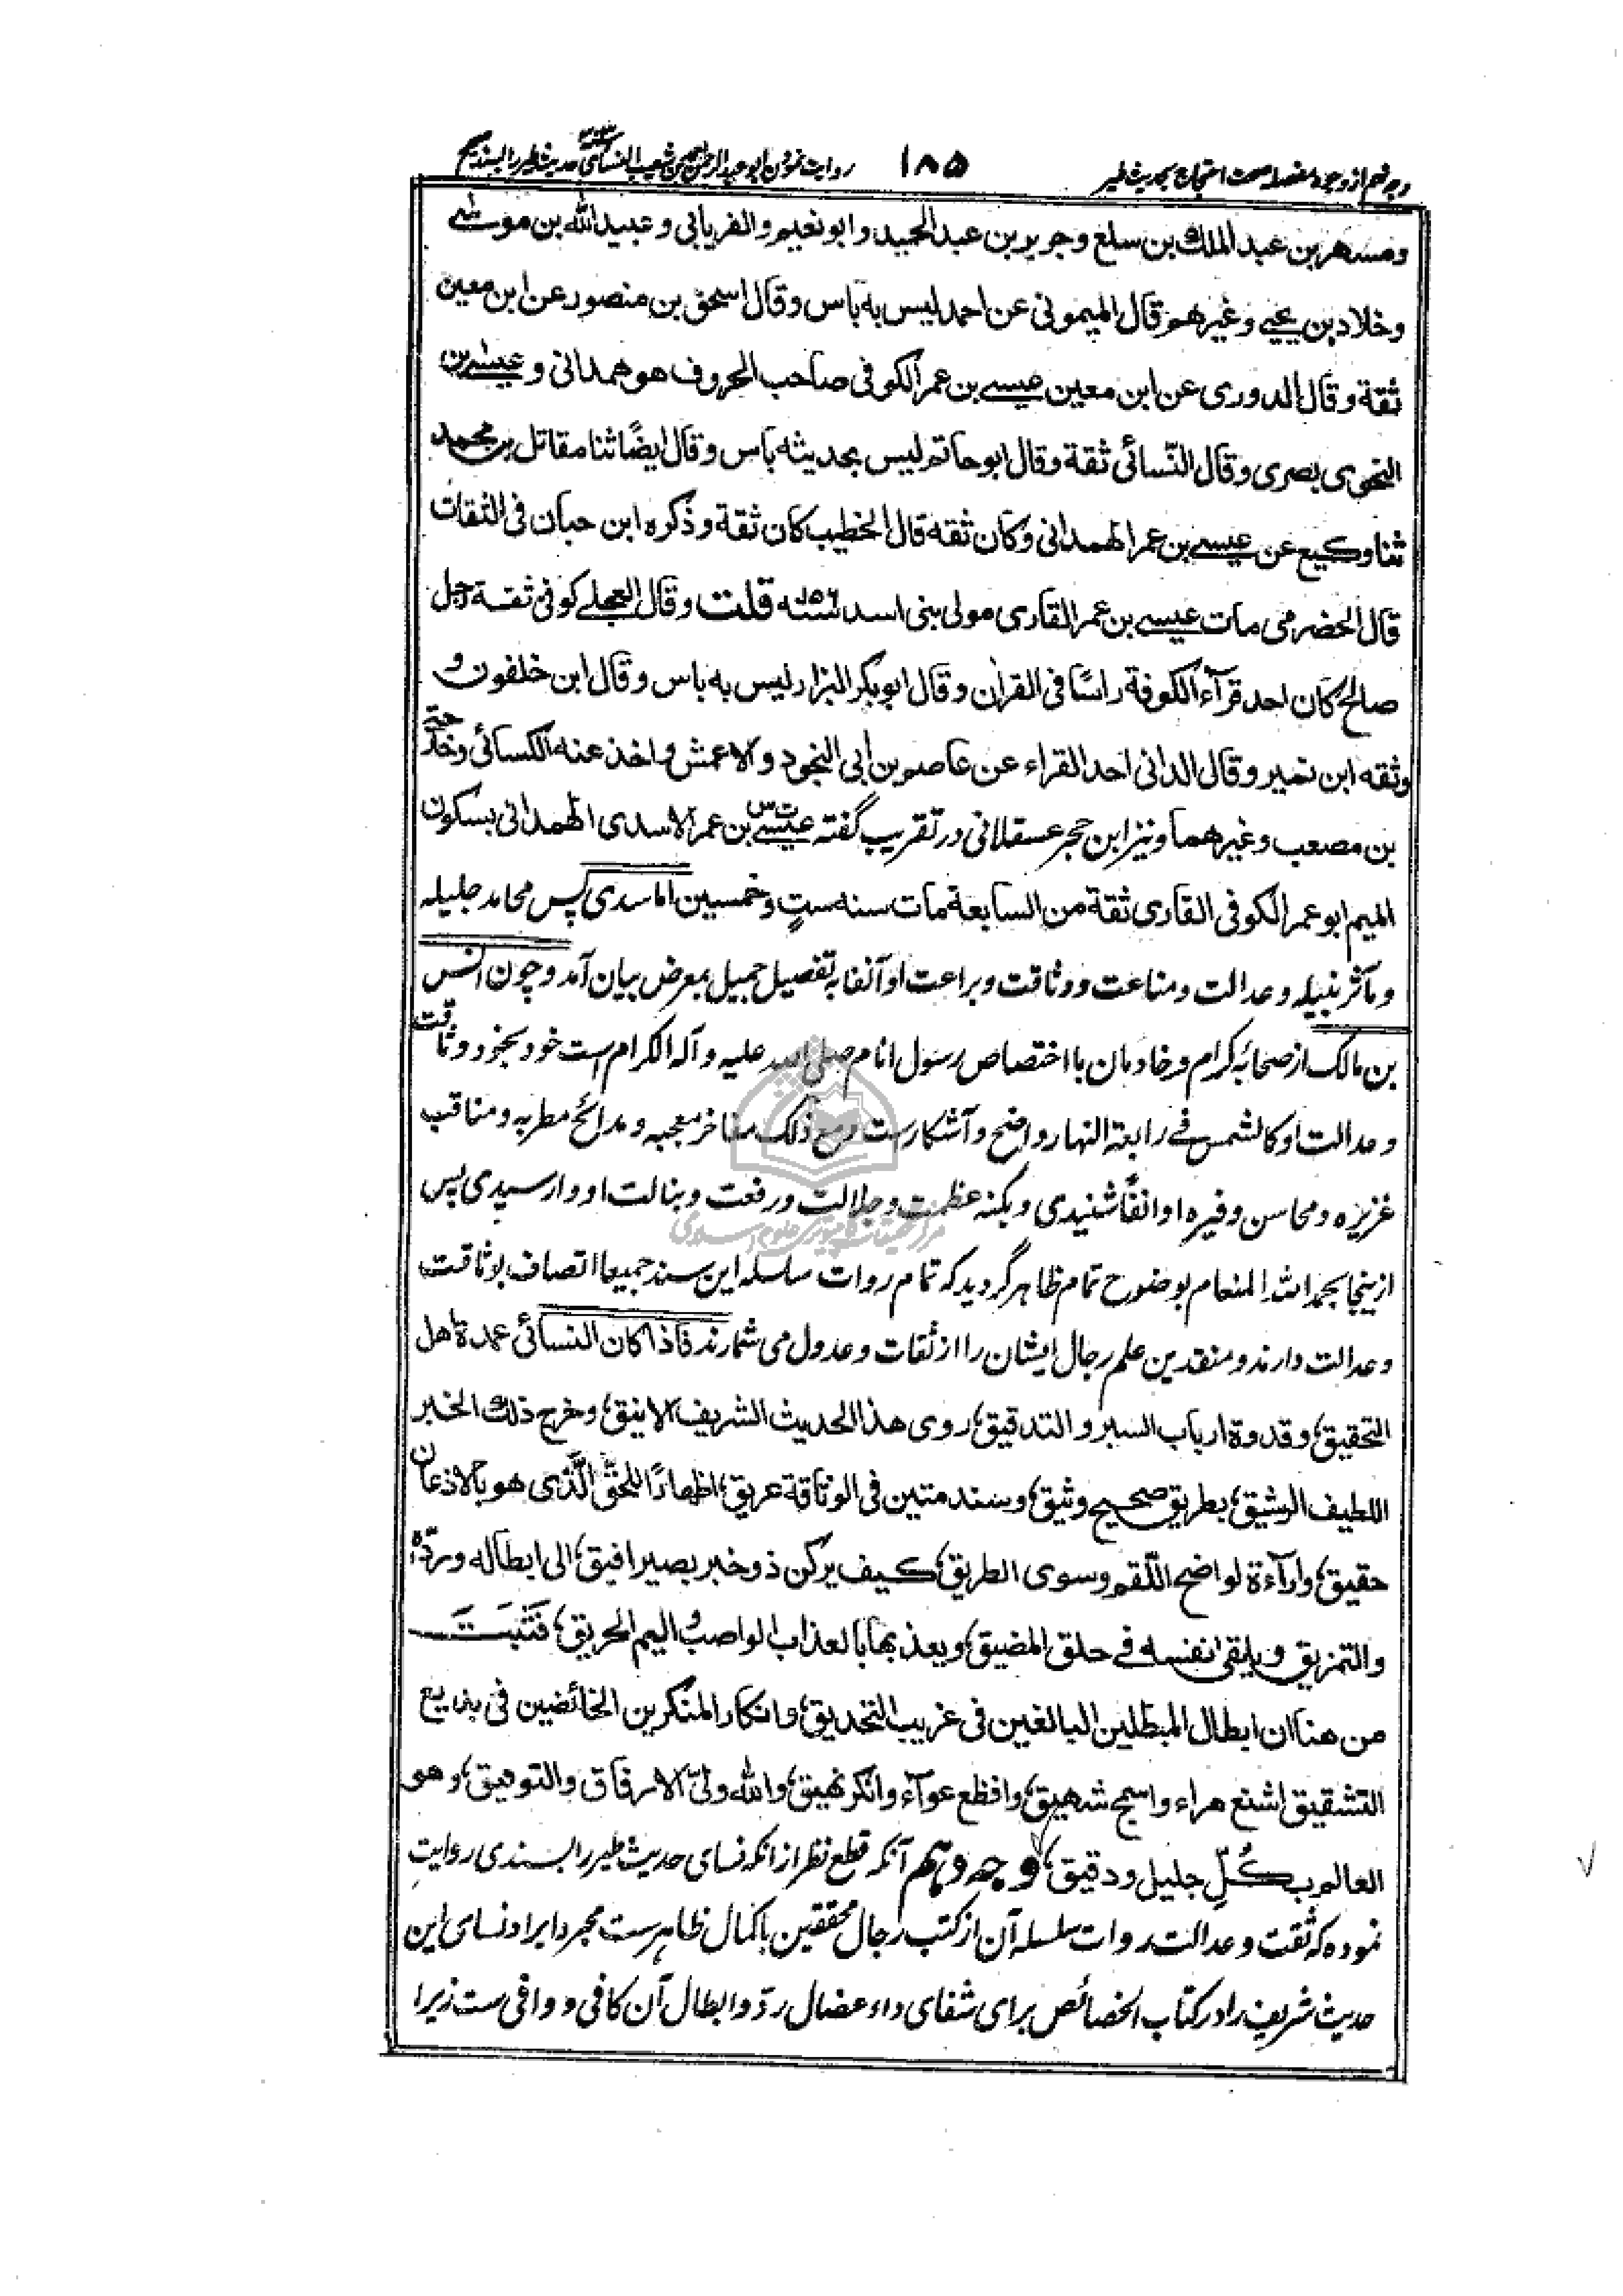 وجه نهم از وجوه مفصله صحت احتجاج بحدیث طیر ۱۸۵ روایت نمودن ابو عبد الرحمن احمد بن شعیب النسائی حدیث طیر را بسند صحیح
ومسهر بن عبد الملك بن سلع وجریر بن عبد الحمید وابو نعیم والفریابی وعبید الله بن موسی
وخلاد بن یحیی وغیرهم قال المیمونی عن احمد لیس به باس وقال اسحق بن منصور عن ابن معین
ثقة وقال الدوری عن ابن معین عیسی بن عمر الکوفی صاحب الحروف هو همدانی وعیسی بن
النحوی بصری وقال النّسائی ثقة وقال ابو حاتم لیس بحدیثه باس وقال ایضًا ثنا مقاتل بن محمد
ثنا وکیع عن عیسی بن عمر الهمدانی وکان ثقه قال الخطیب کان ثقة وذکره ابن حبان فی الثقات
قال الحضرمی مات عیسی بن عمر القاری مولی بنی اسد سنه ۱۵۶ قلت وقال العجلی کوفی ثقة رجل
صالح کان احد قرآء الکوفة راسًا فی القران وقال ابو بکر البزار لیس به باس وقال ابن خلفون و
وثقه ابن نمیر وقال الدانی احد القراء عن عاصم بن ابی النجود والاعمش واخذ عنه الکسائی وخارجة
بن مصعب وغیرهما ونیز ابن حجر عسقلانی در تقریب گفته عیسی بن عمر الاسدی الهمدانی بسکون
المیم ابو عمر الکوفی القاری ثقة من السابعة مات سنه ستٍ وخمسین اما سدی پس محامد جلیله
ومآثر نبیله وعدالت ومناعت ووثاقت وبراعت او آنفا به تفصیل جمیل بمعرض بیان آمد وچون انس
بن مالک از صحابه کرام وخادمان با اختصاص رسول انام صلی الله علیه وآله الکرام است خود بخود وثاقت
وعدالت او کالشمس فی رابعة النهار واضح وآشکار ست ومع ذلک مفاخر معجبه ومدائح مطربه ومناقب
غزیزه ومحاسن وفیره او انفًا شنیدی وبکنه عظمت وجلالت ورفعت ونبالت او وارسیدی پس
ازینجا بحمد الله المنعام بوضوح تمام ظاهر گردید که تمام روات سلسله این سند جمیعا اتصاف بوثاقت
وعدالت دارند ومنقدین علم رجال ایشان را از ثقات وعدول می شمارند فاذا کان النسائی عمدة اهل
التحقیق؛ وقدوة ارباب السبر والتدقیق؛ روی هذا الحدیث الشریف الانیق؛ وخرج ذلك الخبر
اللطیف الرشیق؛ بطریق صحیح وثیق؛ وسند متین فی الوثاقة عریق؛ اظهارًا للحقّ الّذی هو بالاذعان
حقیق؛ وارآءة لواضح اللّقم وسوی الطریق؛ کیف یرکن ذو خبر بصیر افیق؛ الی ابطاله وردّه
والتمزیق ویلقی نفسه فی حلق المضیق؛ ویعذبها بالعذاب الواصب والیم الحریق؛ فَثَبَتَ
من هنا ان ابطال المبطلین البالغین فی غریب التحدیق؛ وانکار المنکرین الخائضین فی بدیع
التشقیق اشنع هراء واسمج شهیق؛ وافظع عوآء وانکر نهیق؛ والله ولیّ الارفاق والتوفیق؛ وهو
العالم بکلّ جلیل ودقیق؛ وجه دهم آنکه قطع نظر از انکه نسای حدیث طیر را بسندی روایت
نموده که ثقت وعدالت روات سلسله آن از کتب رجال محققین با کمال ظاهرست مجرد ایراد نسای این
حدیث شریف را در کتاب الخصائص برای شفای داء عضال ردّ وابطال آن کافی ووافی ست زیرا